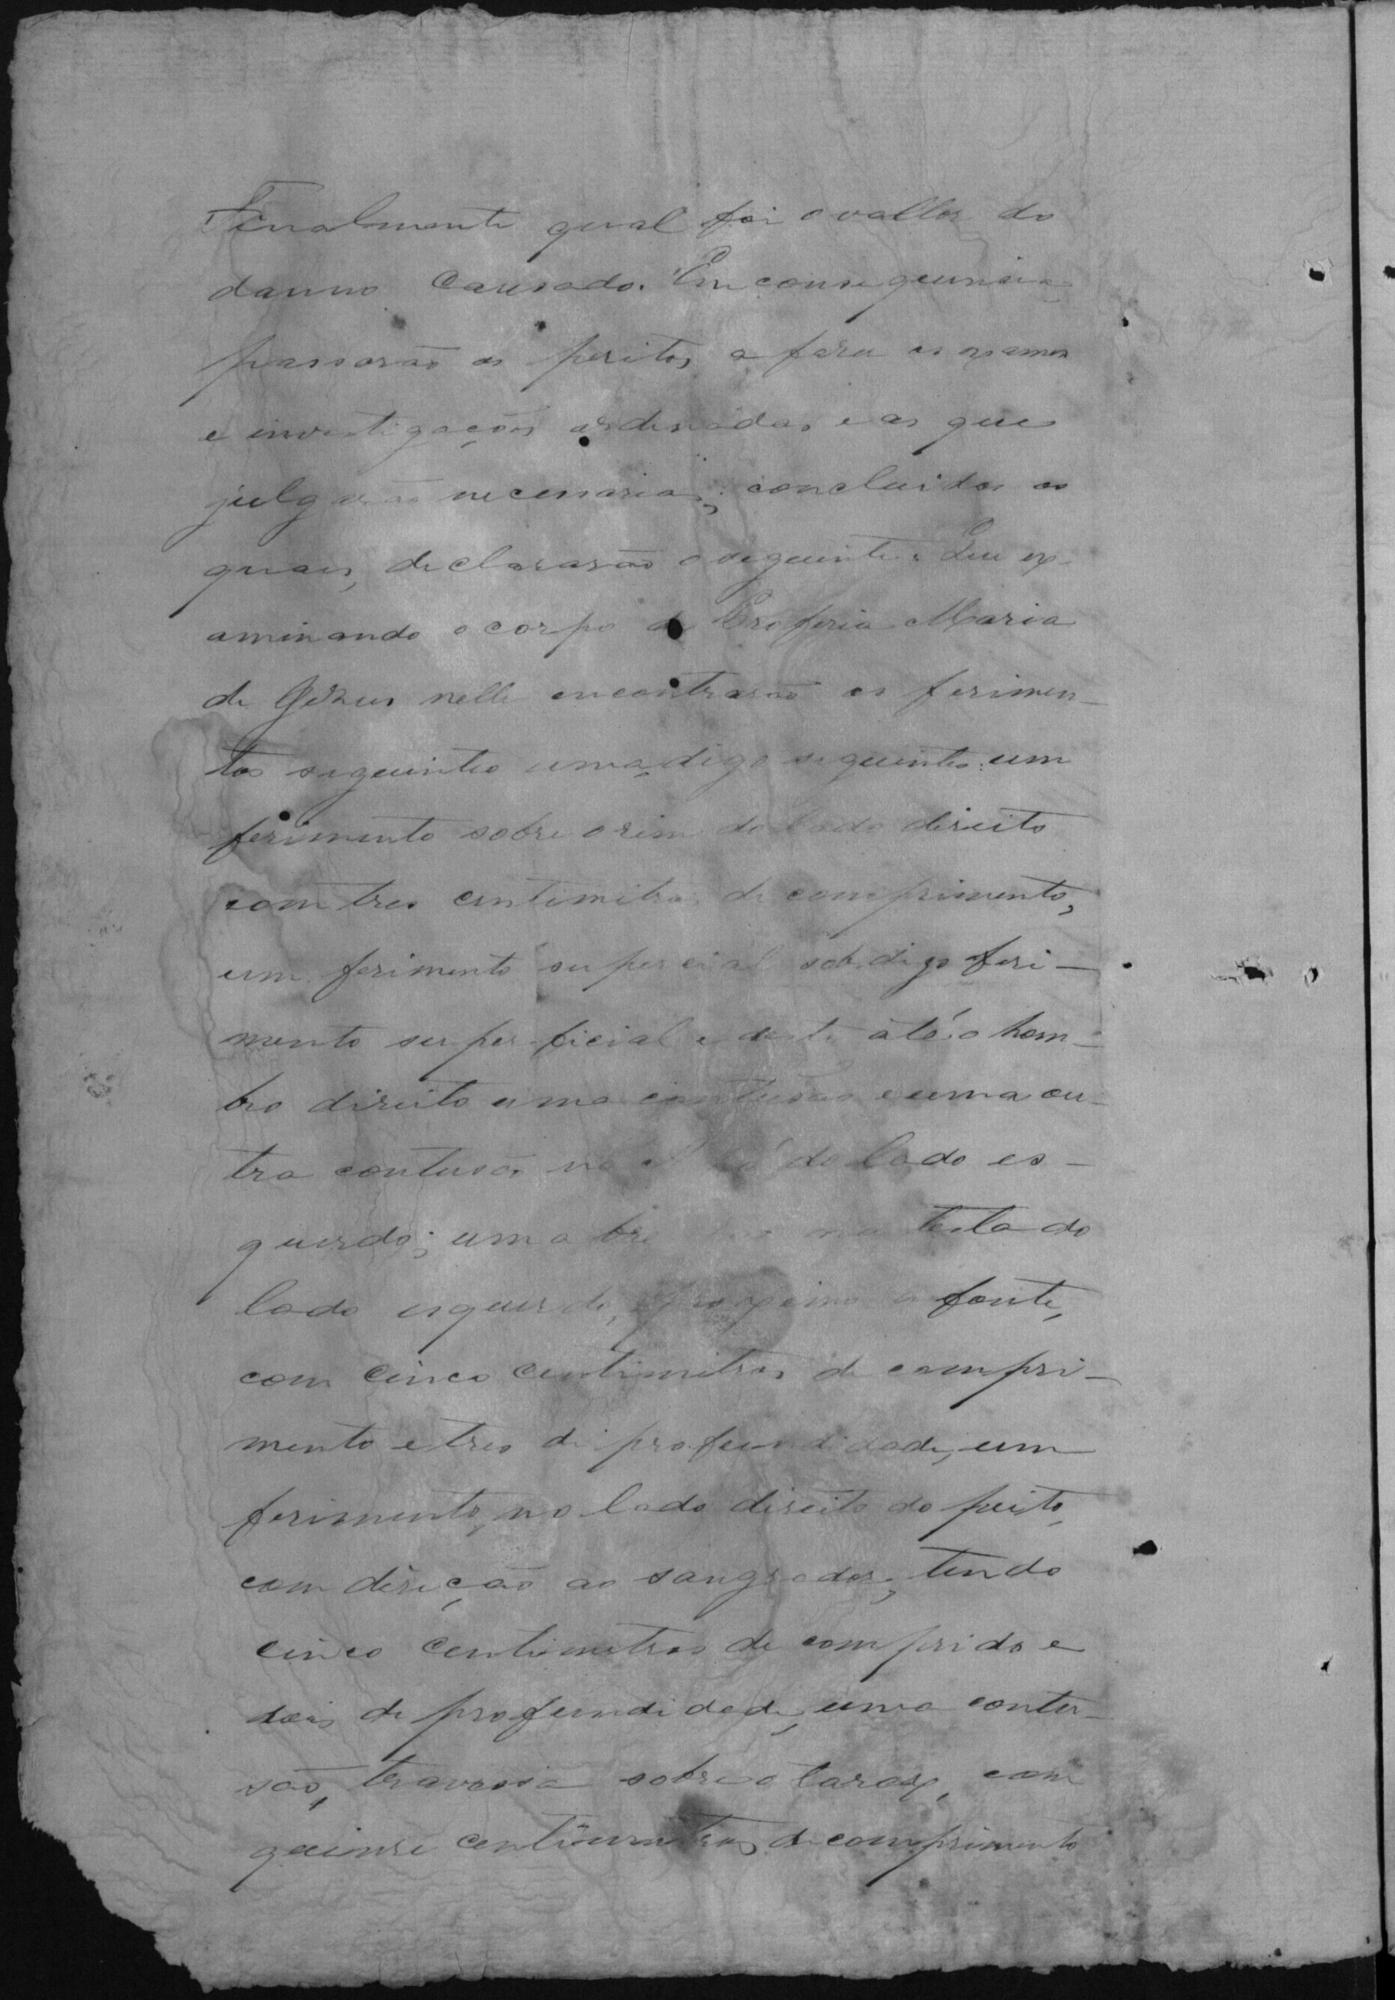 Finalmente qual foi o vallor do
danno causado. Em consequencia
passarão os peritos a fazer os exames
e investigações ordenadas e as que
julgarão necessarias; concluidos os
quaes, declararão o seguinte: Que ex-
aminando o corpo de Maria
de Gezus nelle encontrarão os ferimen-
tos seguintes uma, digo seguintes: um
ferimento sobre o rim do lado direito
com tres centimetros de comprimento,
um ferimento supercial sob, digo feri-
mento superficial e deste até o hom-
bro direito uma contusão e uma ou-
tra contusão no do lado es-
querdo; uma na testa do
lado esquerdo, proximo a fonte,
com cinco centimetros de compri-
mento e tres de profundidade, um
ferimento, no lado direito do peito,
com direção ao sangrador, tendo
cinco centimetros de comprido e
dois de profundidade, uma contu-
são, travessa sobre o tarax, com
quinse centimetros de comprimento